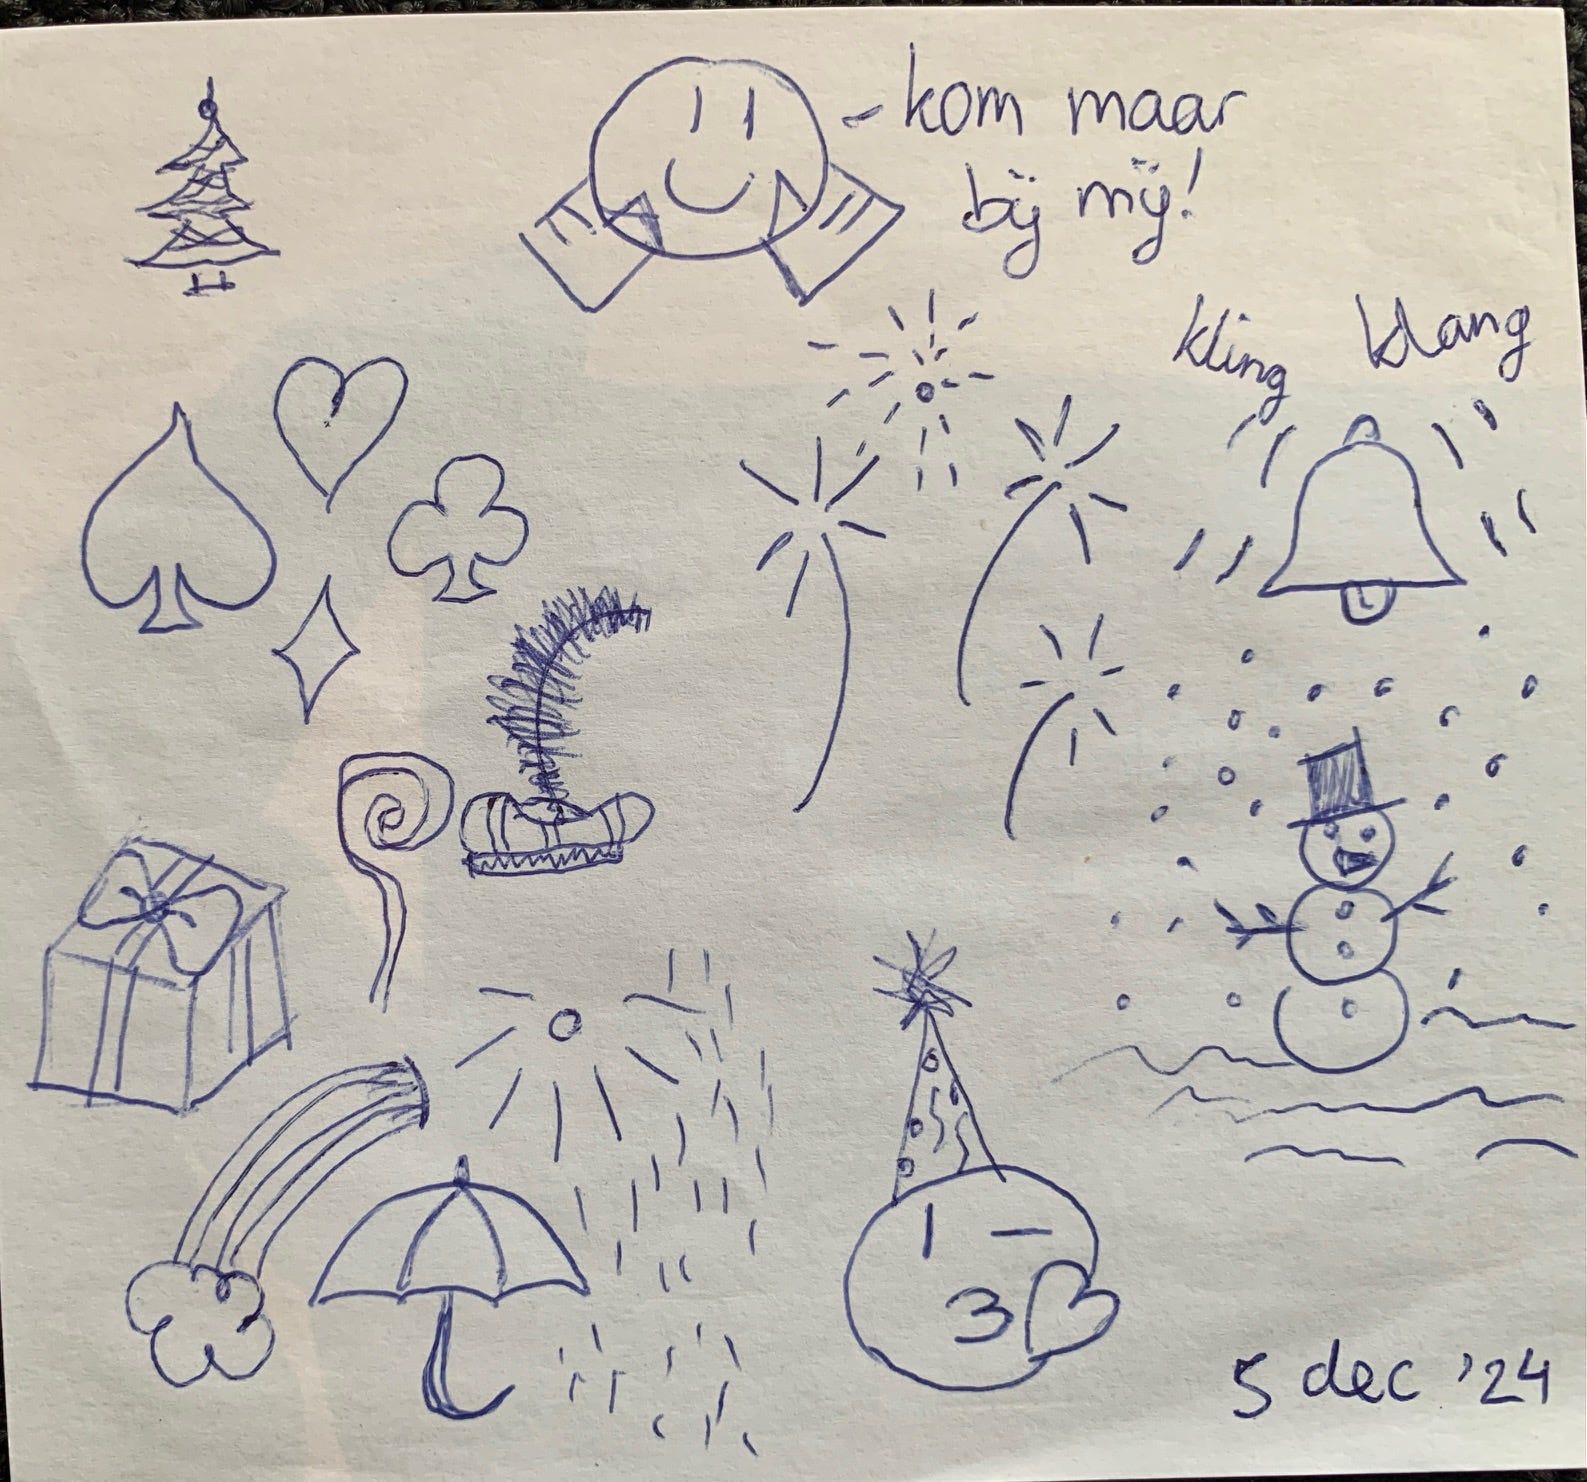 - kom maar
bij mij!
kling klang
5 dec '24